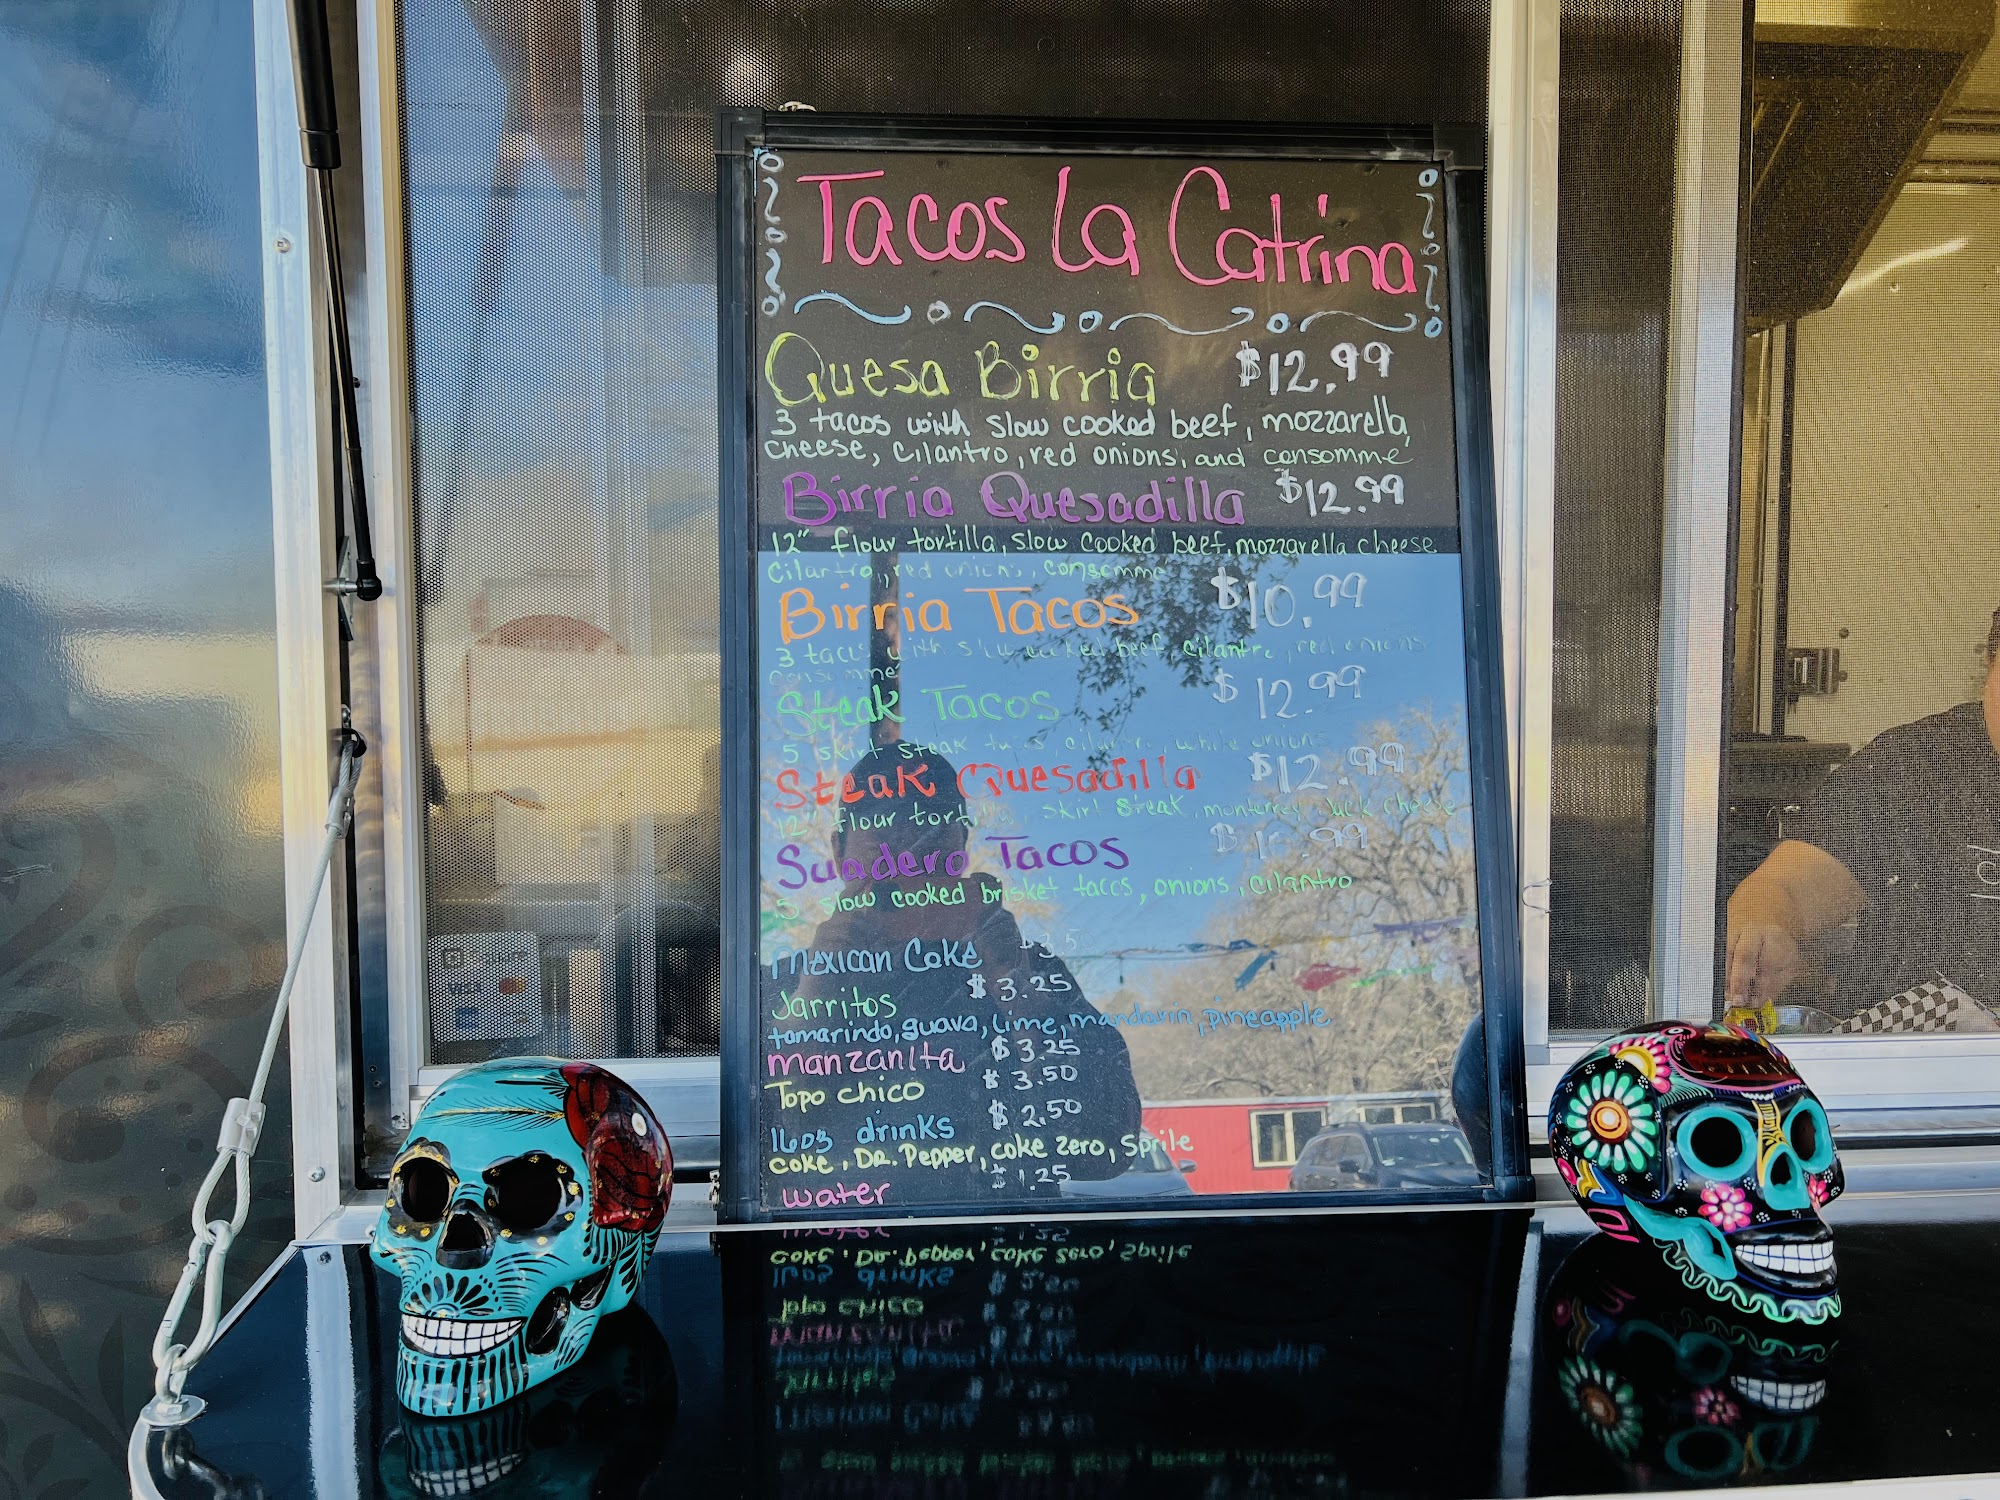 Tacos La Catrina
Quesa Birria $12.99
3 tacos with slow cooked beef, mozzarella
cheese, cilantro, red onions, and consomme
Birria Quesadilla $12.99
12" flour tortilla, slow cooked beef, mozzarella cheese
cilantro, red onions, consommé
Birria Tacos $10.99
3 tacos with slow cooked beef, cilantro, red onions
consommé
Steak Tacos $12.99
5 skirt steak tacos, cilantro, white onions
Steak Quesadilla $12.99
12" flour tortilla, skirt steak, monterrey Jack cheese
Suadero Tacos
5 slow cooked brisket tacos, onions, cilantro
Mexican Coke $3.50
Jarritos $3.25
tamarindo, guava, lime, mandarin, pineapple
manzanita $3.25
Topo chico $3.50
16oz drinks $2.50
coke, Dr. Pepper, coke zero, Sprite
water $1.25
Square
VISA